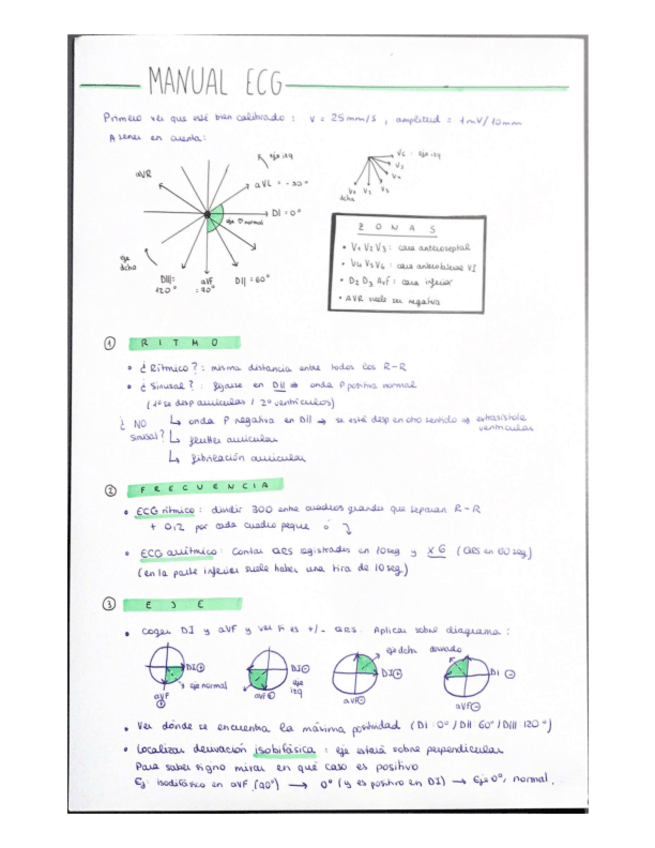 MANUAL ECG
Primero ver que esté bien calibrado : v = 25mm/s , amplitud = 1mV/10mm
A tener en cuenta:
eje izq
aVR
aVL = -30°
DI = 0°
eje normal
eje dcho
DIII = 120°
aVF = 90°
DII = 60°
V6 : eje izq
V5
V4
V1 V2 V3
dcha
ZONAS
• V1 V2 V3 : cara anteroseptal
• V4 V5 V6 : cara anterolateral VI
• D2 D3 AvF : cara inferior
• AVR suele ser negativa
① RITMO
• ¿Rítmico? : misma distancia entre todos los R-R
• ¿Sinusal? : fijarse en DII → onda P positiva normal
(1º se desp aurículas / 2º ventrículos)
¿NO sinusal?
↳ onda P negativa en DII → se está desp en otro sentido → extrasístole ventricular
↳ flutter auricular
↳ fibrilación auricular
② FRECUENCIA
• ECG rítmico : dividir 300 entre cuadros grandes que separan R-R
+ 0,2 por cada cuadro peque ó
• ECG arrítmico : Contar QRS registrados en 10seg y x 6 (QRS en 60 seg)
(en la parte inferior suele haber una tira de 10seg)
③ EJE
• Coger DI y aVF y ver si es +/- QRS. Aplicar sobre diagrama :
DI⊕ aVF⊕ eje normal
DI⊖ aVF⊕ eje izq
DI⊕ aVF⊖ eje dcho
desviado DI⊖ aVF⊖
• Ver dónde se encuentra la máxima positividad (DI 0° / DII 60° / DIII 120°)
• Localizar derivación isobifásica : eje estará sobre perpendicular
Para saber signo mirar en qué caso es positivo
Ej: isodifásico en aVF (90°) → 0° (y es positivo en DI) → Eje 0°, normal.